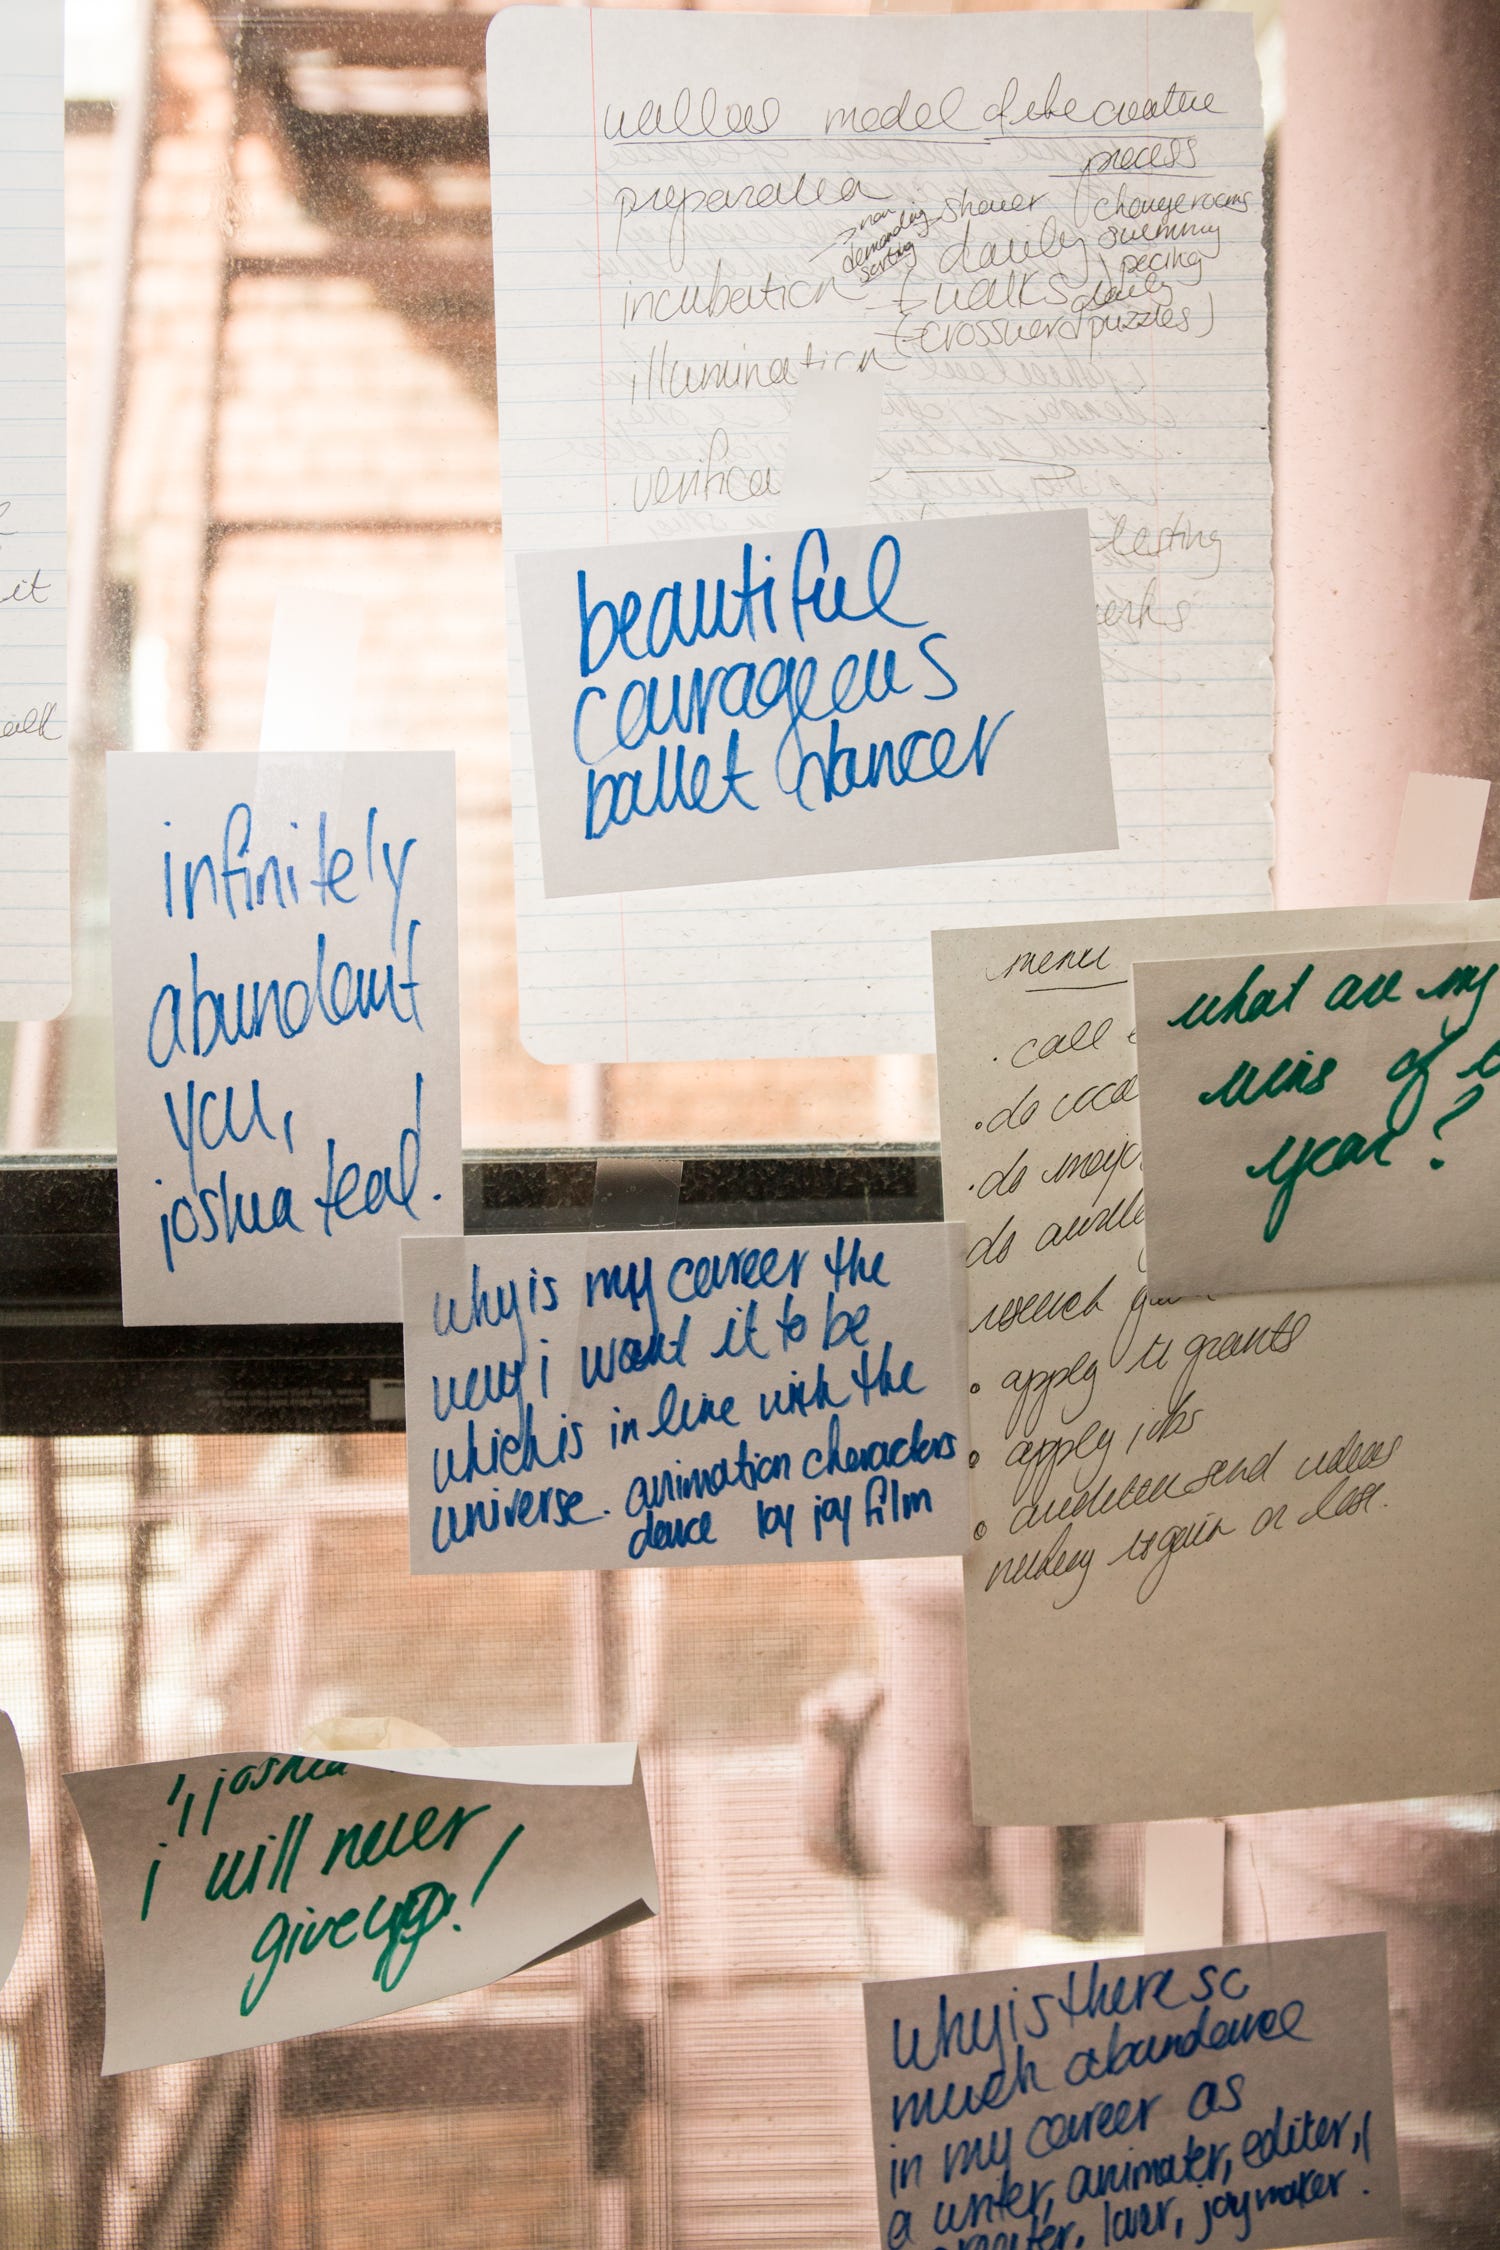 wallas model of the creative
process
preparation
→ non
demanding
setting
shower
daily
walks
changerooms
swimming
pacing
daily
incubation
(-crossword puzzles)
illumination
verifica
testing
works
it
beautiful
courageous
ballet dancer
infinitely
abundant
you,
joshua teal.
menu
• call
• do voca
• do
do
research
• apply to grants
• apply jobs
• audition send videos
nothing to gain or lose.
what are my
wins of
year?
why is my career the
way i want it to be
which is in line with the
universe. animation characters
dance by joy film
i, joshua
i will never
give up!
why is there so
much abundance
in my career as
a writer, animator, editor,
lover, joymaker.